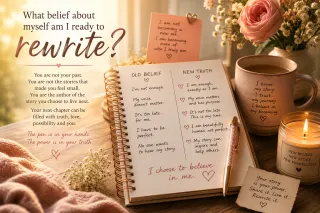 What belief about
myself am I ready to
rewrite?
You are not your past.
You are not the stories that
made you feel small.
You are the author of the
story you choose to live next.
Your next chapter can be
filled with truth, love,
possibility and you.
The pen is in your hands.
The power is in your truth.
I am not
becoming
I am
becoming more
of who I truly am.
OLD BELIEF
I'm not enough.
My voice
doesn't matter.
It's too late
for me.
I have to be
perfect.
No one wants
to hear my story.
NEW TRUTH
I am enough,
exactly as I am.
My voice matters
and has purpose.
It's not too late
This is my time.
I am beautifully
human, not perfect.
My story can
inspire and
help others.
I choose to believe
in me.
I know
my story.
I trust
my journey.
I believe in
my becoming.
Your story
is your power.
Share it. Live it.
Rewrite it.